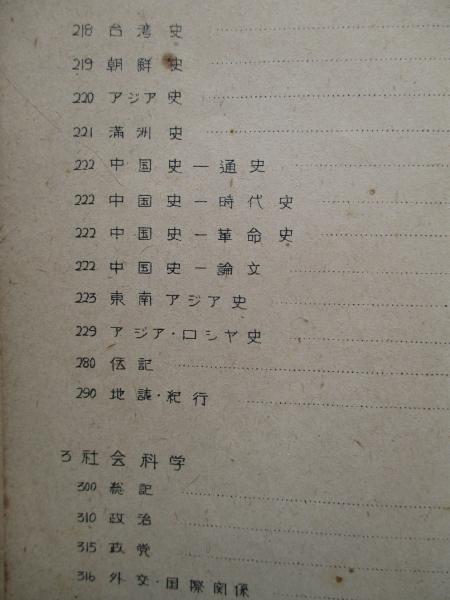 218 台湾史
219 朝鮮史
220 アジア史
221 満洲史
222 中国史－通史
222 中国史－時代史
222 中国史－革命史
222 中国史－論文
223 東南アジア史
229 アジア・ロシヤ史
280 伝記
290 地誌・紀行
3 社会科学
300 総記
310 政治
315 政党
316 外交・国際関係